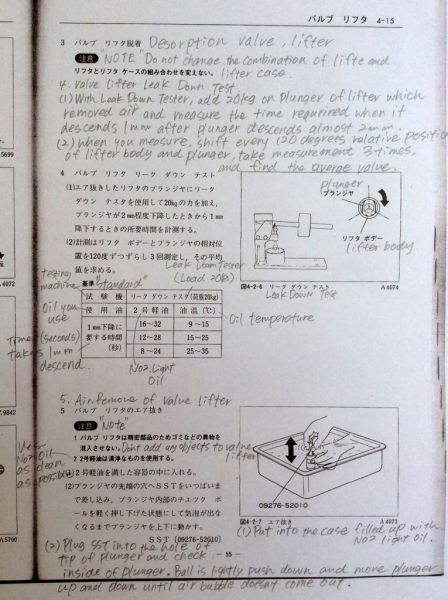 バルブ リフタ 4-15
3 バルブ リフタ脱着 Desorption valve, lifter
注意 "NOTE" Do not change the combination of lifte and
リフタとリフタ ケースの組み合わせを変えない。 lifter case.
4. Valve lifter Leak Down Test
(1) With Leak Down Tester, add 20kg on plunger of lifter which
removed air and measure the time requrired when it
descends 1mm after plunger descends almost 2mm.
(2) when you measure, shift every 120 degrees relative position
of lifter body and plunger, take measurement 3-times,
and find the averge value.
4 バルブ リフタ リーク ダウン テスト
(1)エア抜きしたリフタのプランジャにリーク
ダウン テスタを使用して20kgの力を加え、
プランジャが2mm程度下降したときから1mm
降下するときの所要時間を計測する。
(2)計測はリフタ ボデーとプランジャの相対位
置を120度ずつずらし3回測定し、その平均
値を求める。
plunger
プランジャ
リフタ ボデー
lifter body
図4-2-6 リーク ダウン テスト A4074
Leak Down Test
Leak Down Tester
(Load 20kg)
基準 "Standard"
testing
machine
試験機 リーク ダウン テスタ(荷重20kg)
Oil you
use
使用油 2号軽油 油温(℃)
Oil temperature
Time (seconds)
takes 1mm
descend.
1mm下降に
要する時間
(秒)
16～32 9～15
12～28 15～25
8～24 25～35
No2. Light
Oil
5. Air remove of value lifter
5 バルブ リフタのエア抜き
注意 "Note"
1 バルブ リフタは精密部品のためゴミなどの異物を
混入させない。 Dont add any objects to valve
lifter
2 2号軽油は清浄なものを使用する。
Use
No2 Oil
as clean
as possible
(1)2号軽油を満した容器の中に入れる。
(2)プランジャの先端の穴へSSTをいっぱいま
で差し込み、プランジャ内部のチエツク ボ
ールを軽く押し下げた状態にして気泡が出な
くなるまでプランジャを上下に動かす。
SST [09276-52010]
09276-52010
図4-2-7 エア抜き A4073
(1) Put into the case filled up with
No2 light oil.
(2) Plug SST into the hole of
tip of plunger and check
- 55 -
inside of plunger. Ball is lightly push down and more plunger
up and down until air bubble doesnt come out.
5699
.9842
A5700